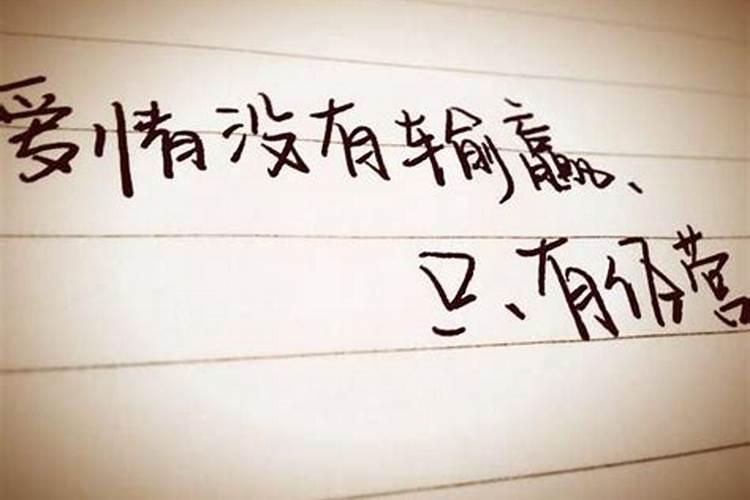 爱情没有输赢、
只有经营